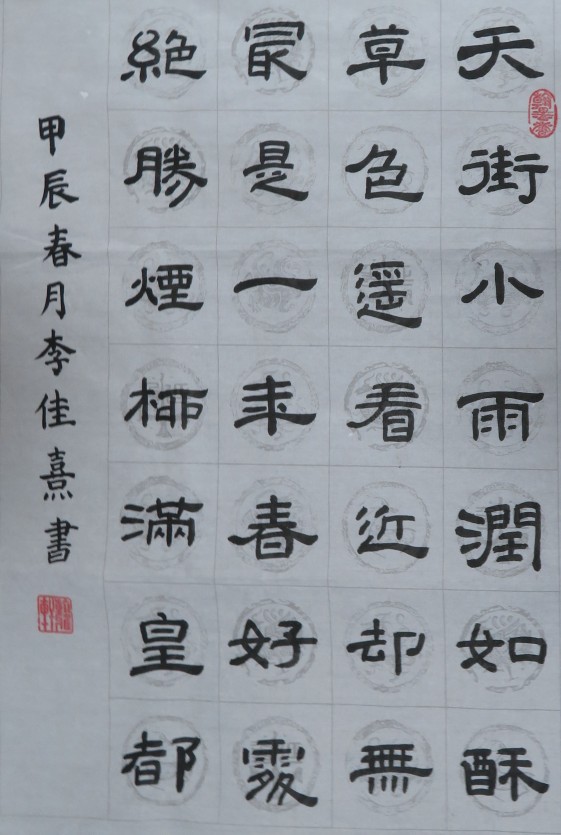 天街小雨潤如酥
草色遥看近却無
冣是一年春好處
絶勝煙柳滿皇都
甲辰春月李佳熹書